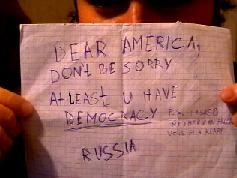 DEAR AMERICA,
DON'T BE SORRY
AT LEAST U HAVE
DEMOCRACY
RUSSIA